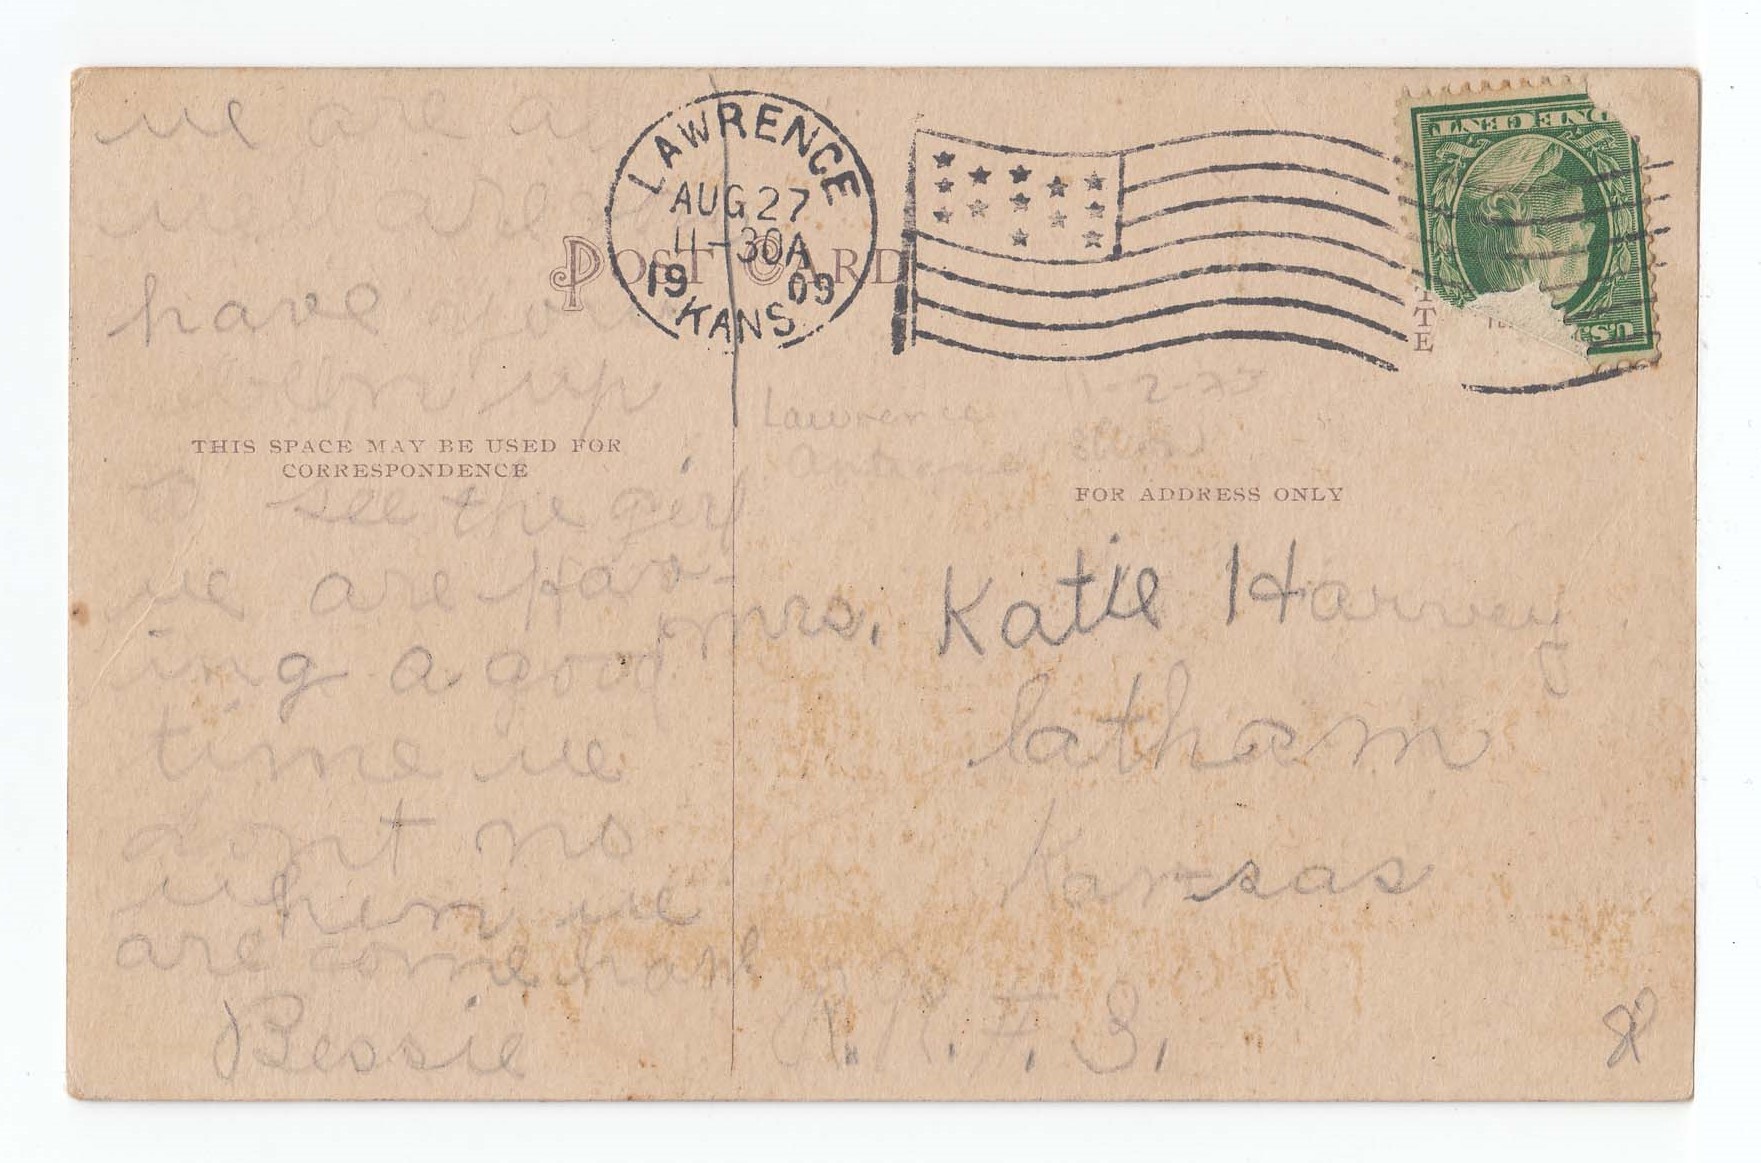 LAWRENCE
AUG 27
11-30A
19 09
KANS.
ONE CENT
U.S.
POST CARD
THIS SPACE MAY BE USED FOR
CORRESPONDENCE
we are a
we are
have you
ben up
to see the girl
we are hav-
ing a good
time we
dont no
when we
are come
Bessie
Lawrence
Antique Show
11-2-73
FOR ADDRESS ONLY
Mrs. Katie Harvey
latham
Kansas
R.R.#.3.